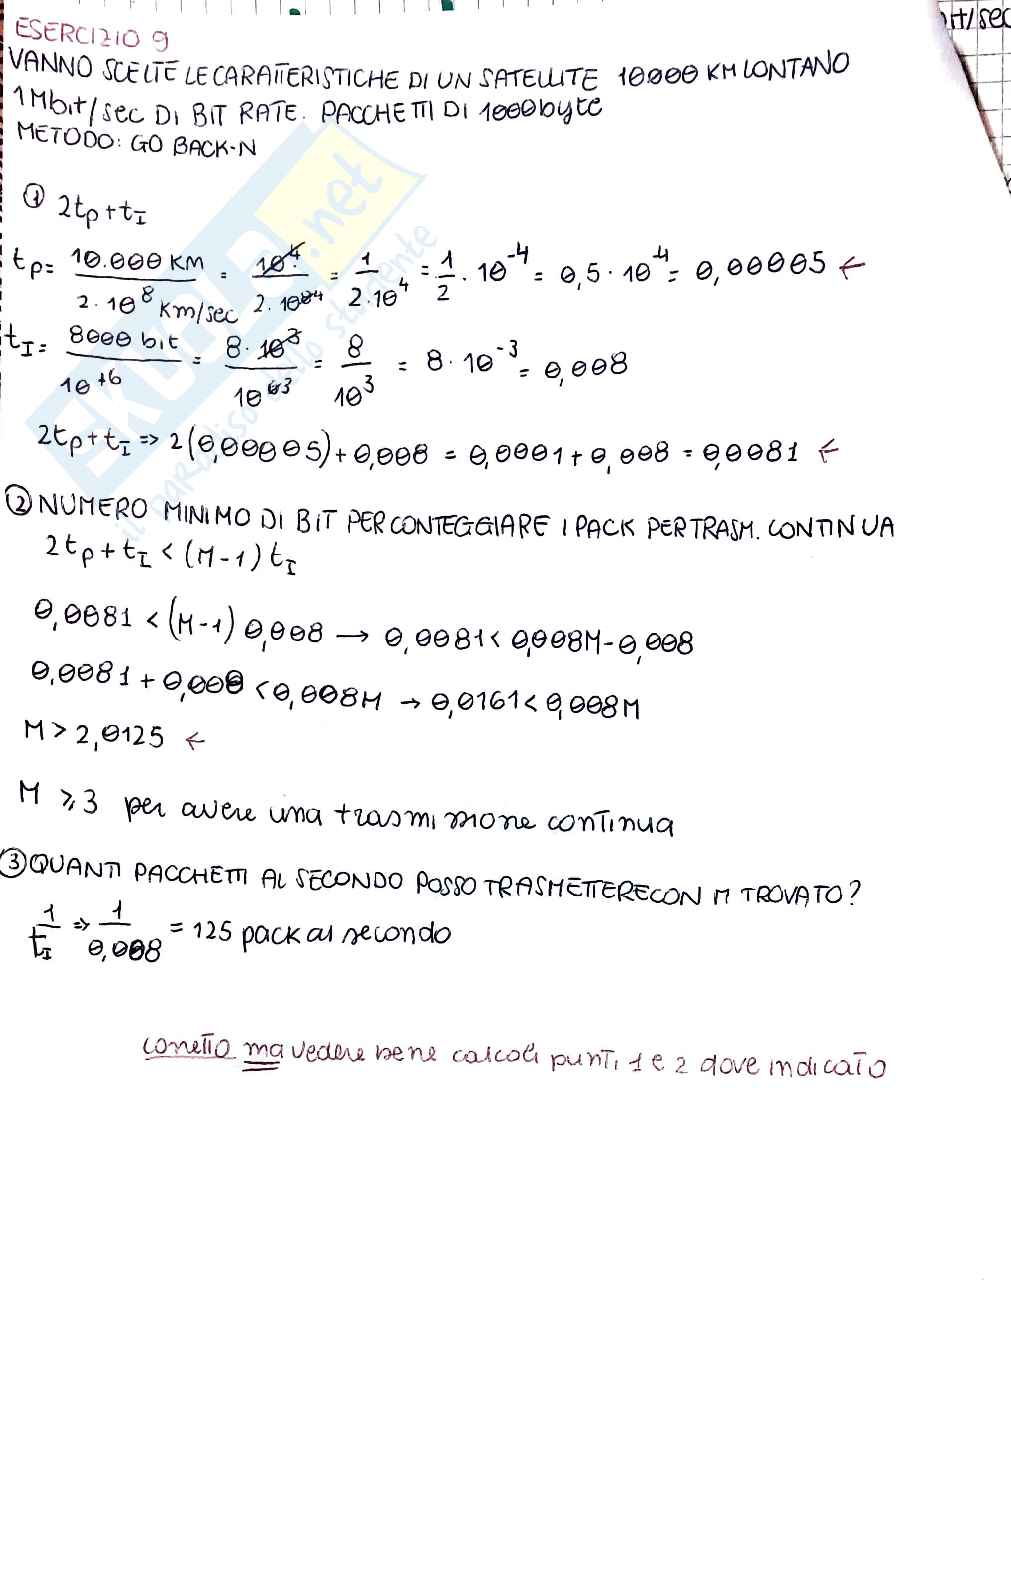 it/sec
ESERCIZIO 9
VANNO SCELTE LE CARATTERISTICHE DI UN SATELLITE 10000 KM LONTANO
1 Mbit/sec DI BIT RATE. PACCHETTI DI 1000byte
METODO: GO BACK-N
① 2tp+tI
tp= 10.000 KM / 2·10^8 Km/sec = 10^4 / 2·10^84 = 1 / 2·10^4 = 1/2 · 10^-4 = 0,5·10^-4 = 0,00005 ←
tI= 8000 bit / 10^+6 = 8·10^3 / 10^63 = 8 / 10^3 = 8·10^-3 = 0,008
2tp+tI => 2(0,00005)+0,008 = 0,0001+0,008 = 0,0081 ←
② NUMERO MINIMO DI BIT PER CONTEGGIARE I PACK PER TRASM. CONTINUA
2tp+tI < (M-1)tI
0,0081 < (M-1) 0,008 → 0,0081 < 0,008M-0,008
0,0081 + 0,008 < 0,008M → 0,0161 < 0,008M
M > 2,0125 ←
M ⩾ 3 per avere una trasmissione continua
③ QUANTI PACCHETTI AL SECONDO POSSO TRASMETTERE CON M TROVATO?
1/tI => 1/0,008 = 125 pack al secondo
corretto ma vedere bene calcoli punti 1 e 2 dove indicato
EKUOLA.net
il paradiso dello studente